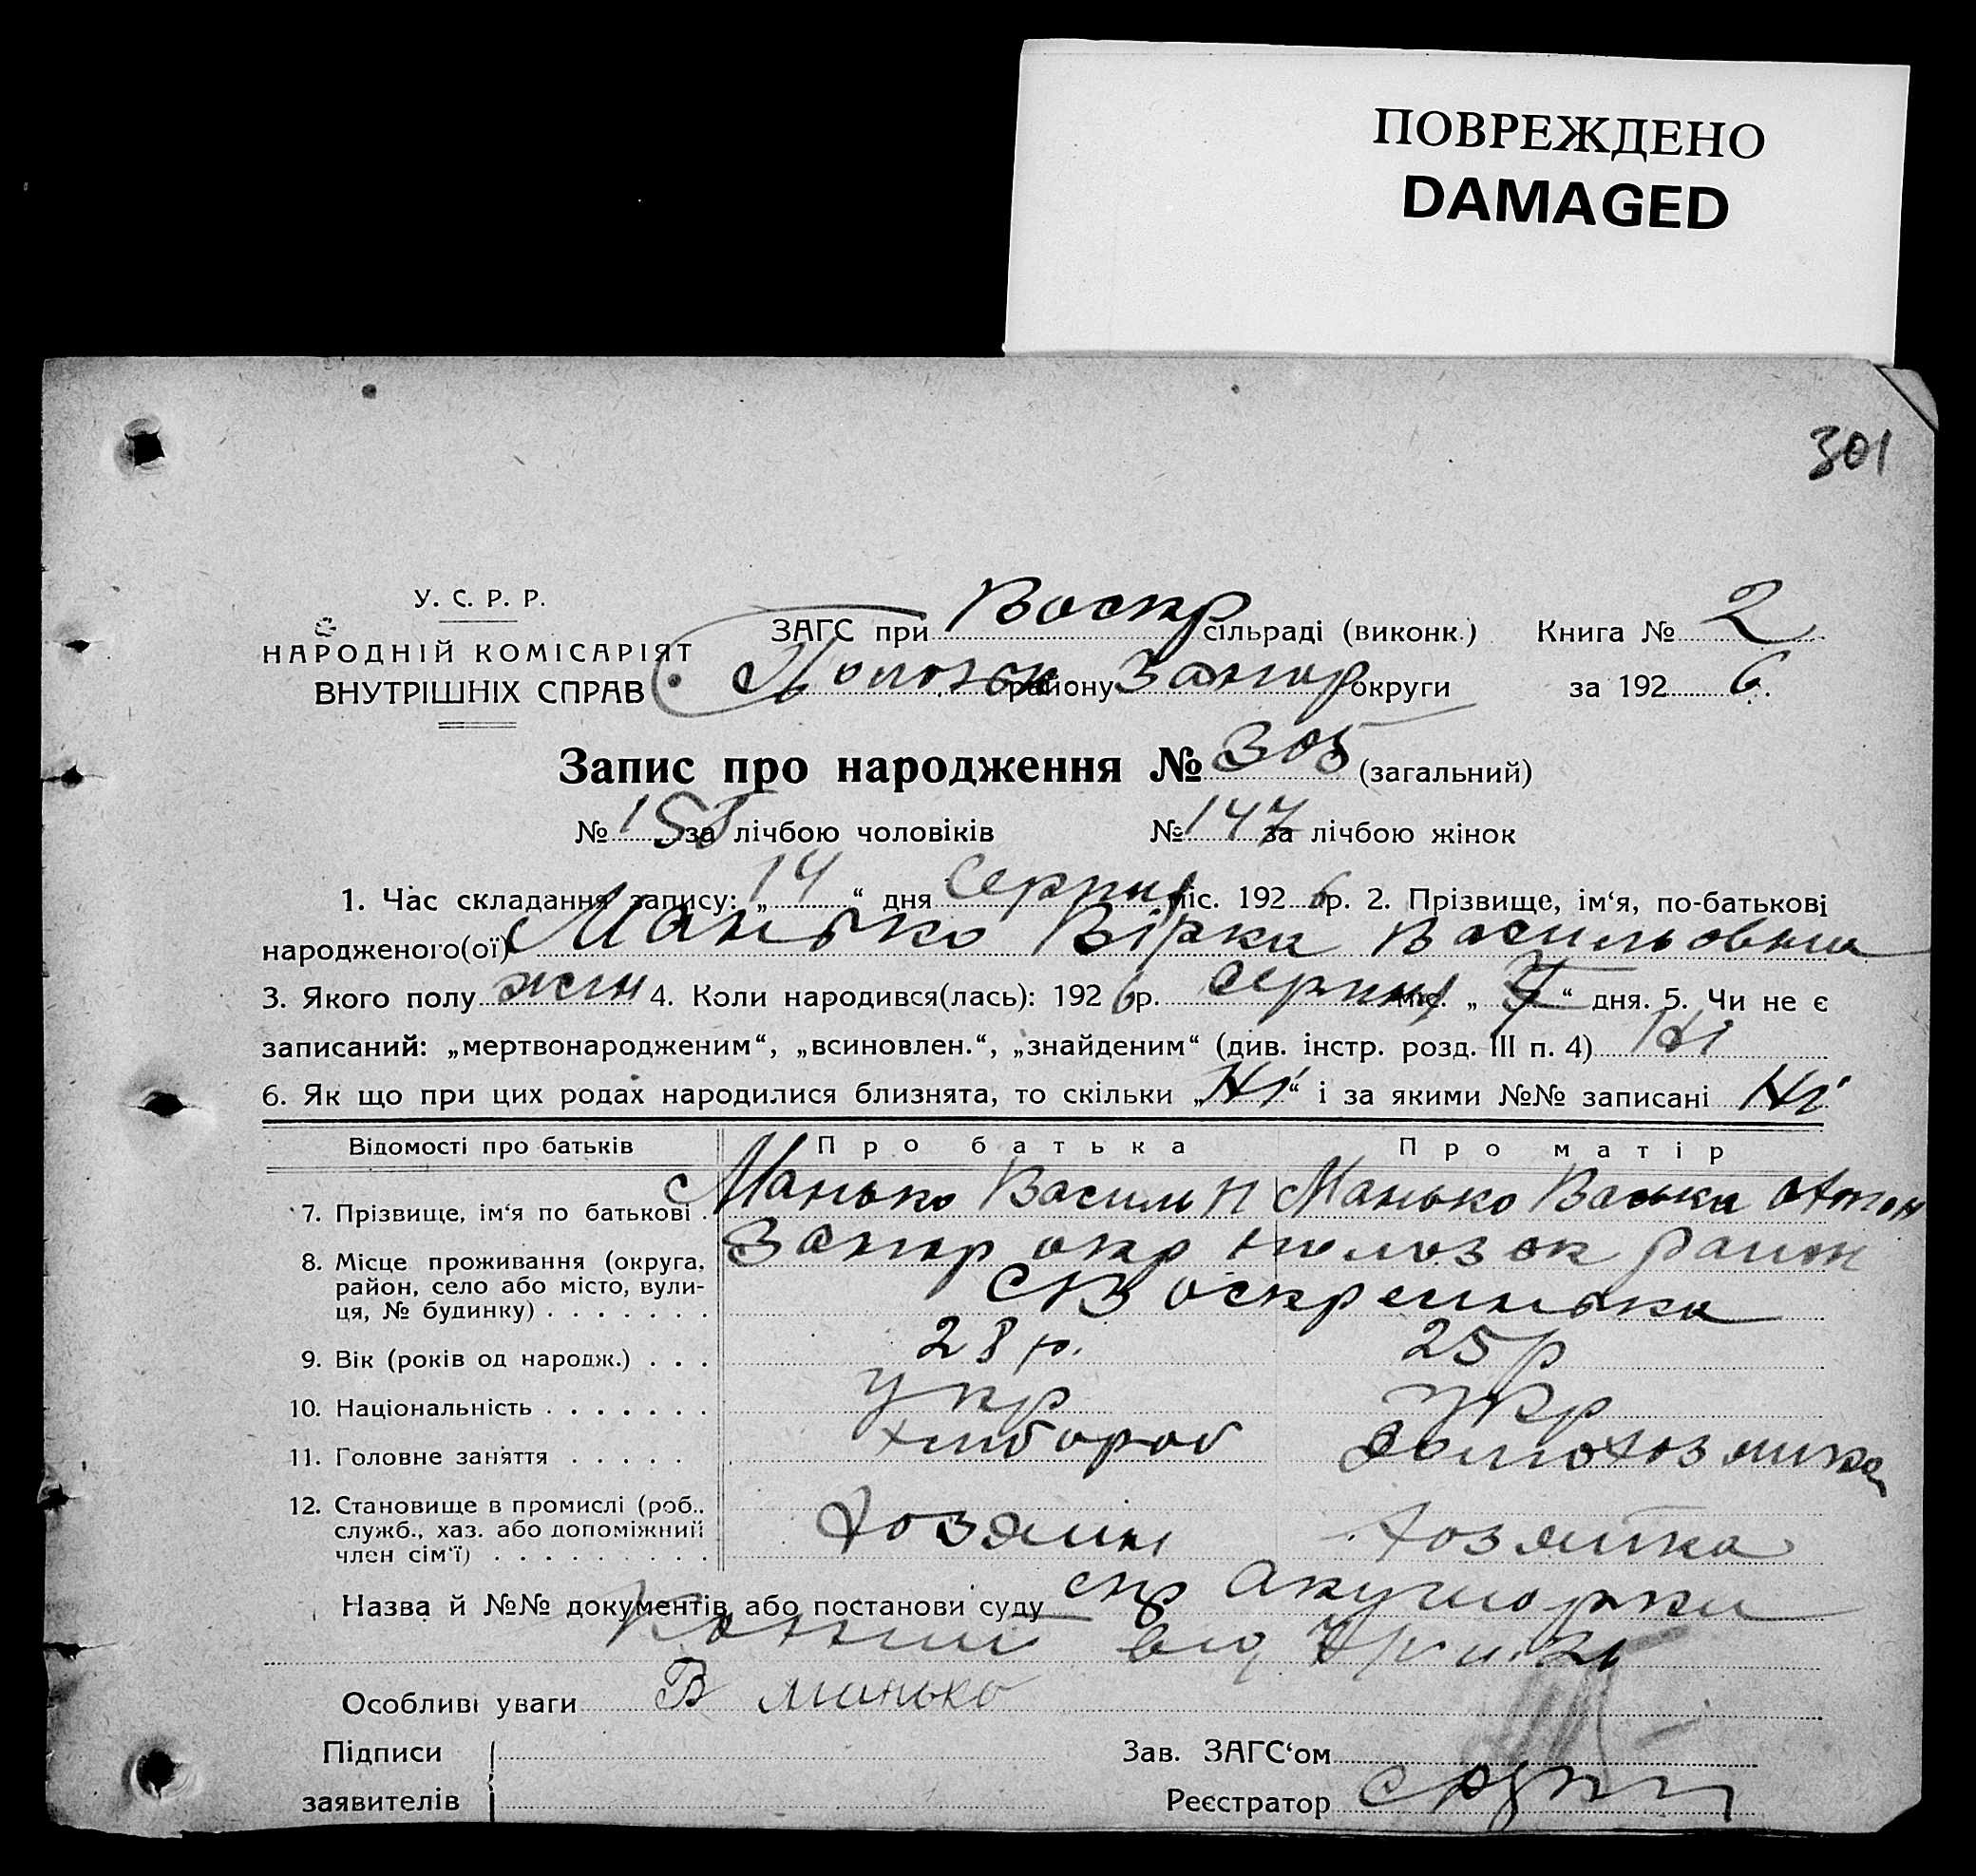 ПОВРЕЖДЕНО
DAMAGED
301
У. С. Р. Р.
НАРОДНІЙ КОМІСАРІЯТ
ВНУТРІШНІХ СПРАВ
ЗАГС при Воскр сільраді (виконк.) Книга № 2
Полозьк району Запор округи за 1926.
Запис про народження № 305 (загальний)
№ 158 за лічбою чоловіків № 147 за лічбою жінок
1. Час складання запису: „14“ дня Серпня міс. 1926 р. 2. Прізвище, ім‘я, по-батькові
народженого(ої) Манько Вірка Васильовна
3. Якого полу жін 4. Коли народився(лась): 1926 р. Серпня міс. „ “ дня. 5. Чи не є
записаний: „мертвонародженим“, „всиновлен.“, „знайденим“ (див. інстр. розд. III п. 4) Ні
6. Як що при цих родах народилися близнята, то скільки „Ні“ і за якими №№ записані Ні
Відомості про батьків Про батька Про матір
7. Прізвище, ім‘я по батькові . Манько Василь П Манько Васька Антон
8. Місце проживання (округа, район, село або місто, вулиця, № будинку) . . . . . . . Запор окр полозьк район
с Воскресенька
9. Вік (років од народж.) . . . 28 р. 25 р
10. Національність . . . . . . . Укр Укр
11. Головне заняття . . . . . хлібороб домохозяйка
12. Становище в промислі (роб., служб., хаз. або допоміжний член сім‘ї) . . . . . . . . . Хозяин хозяйка
Назва й №№ документів або постанови суду спр Акушорки
від
Особливі уваги В Манько
Підписи заявителів
Зав. ЗАГС‘ом
Реєстратор